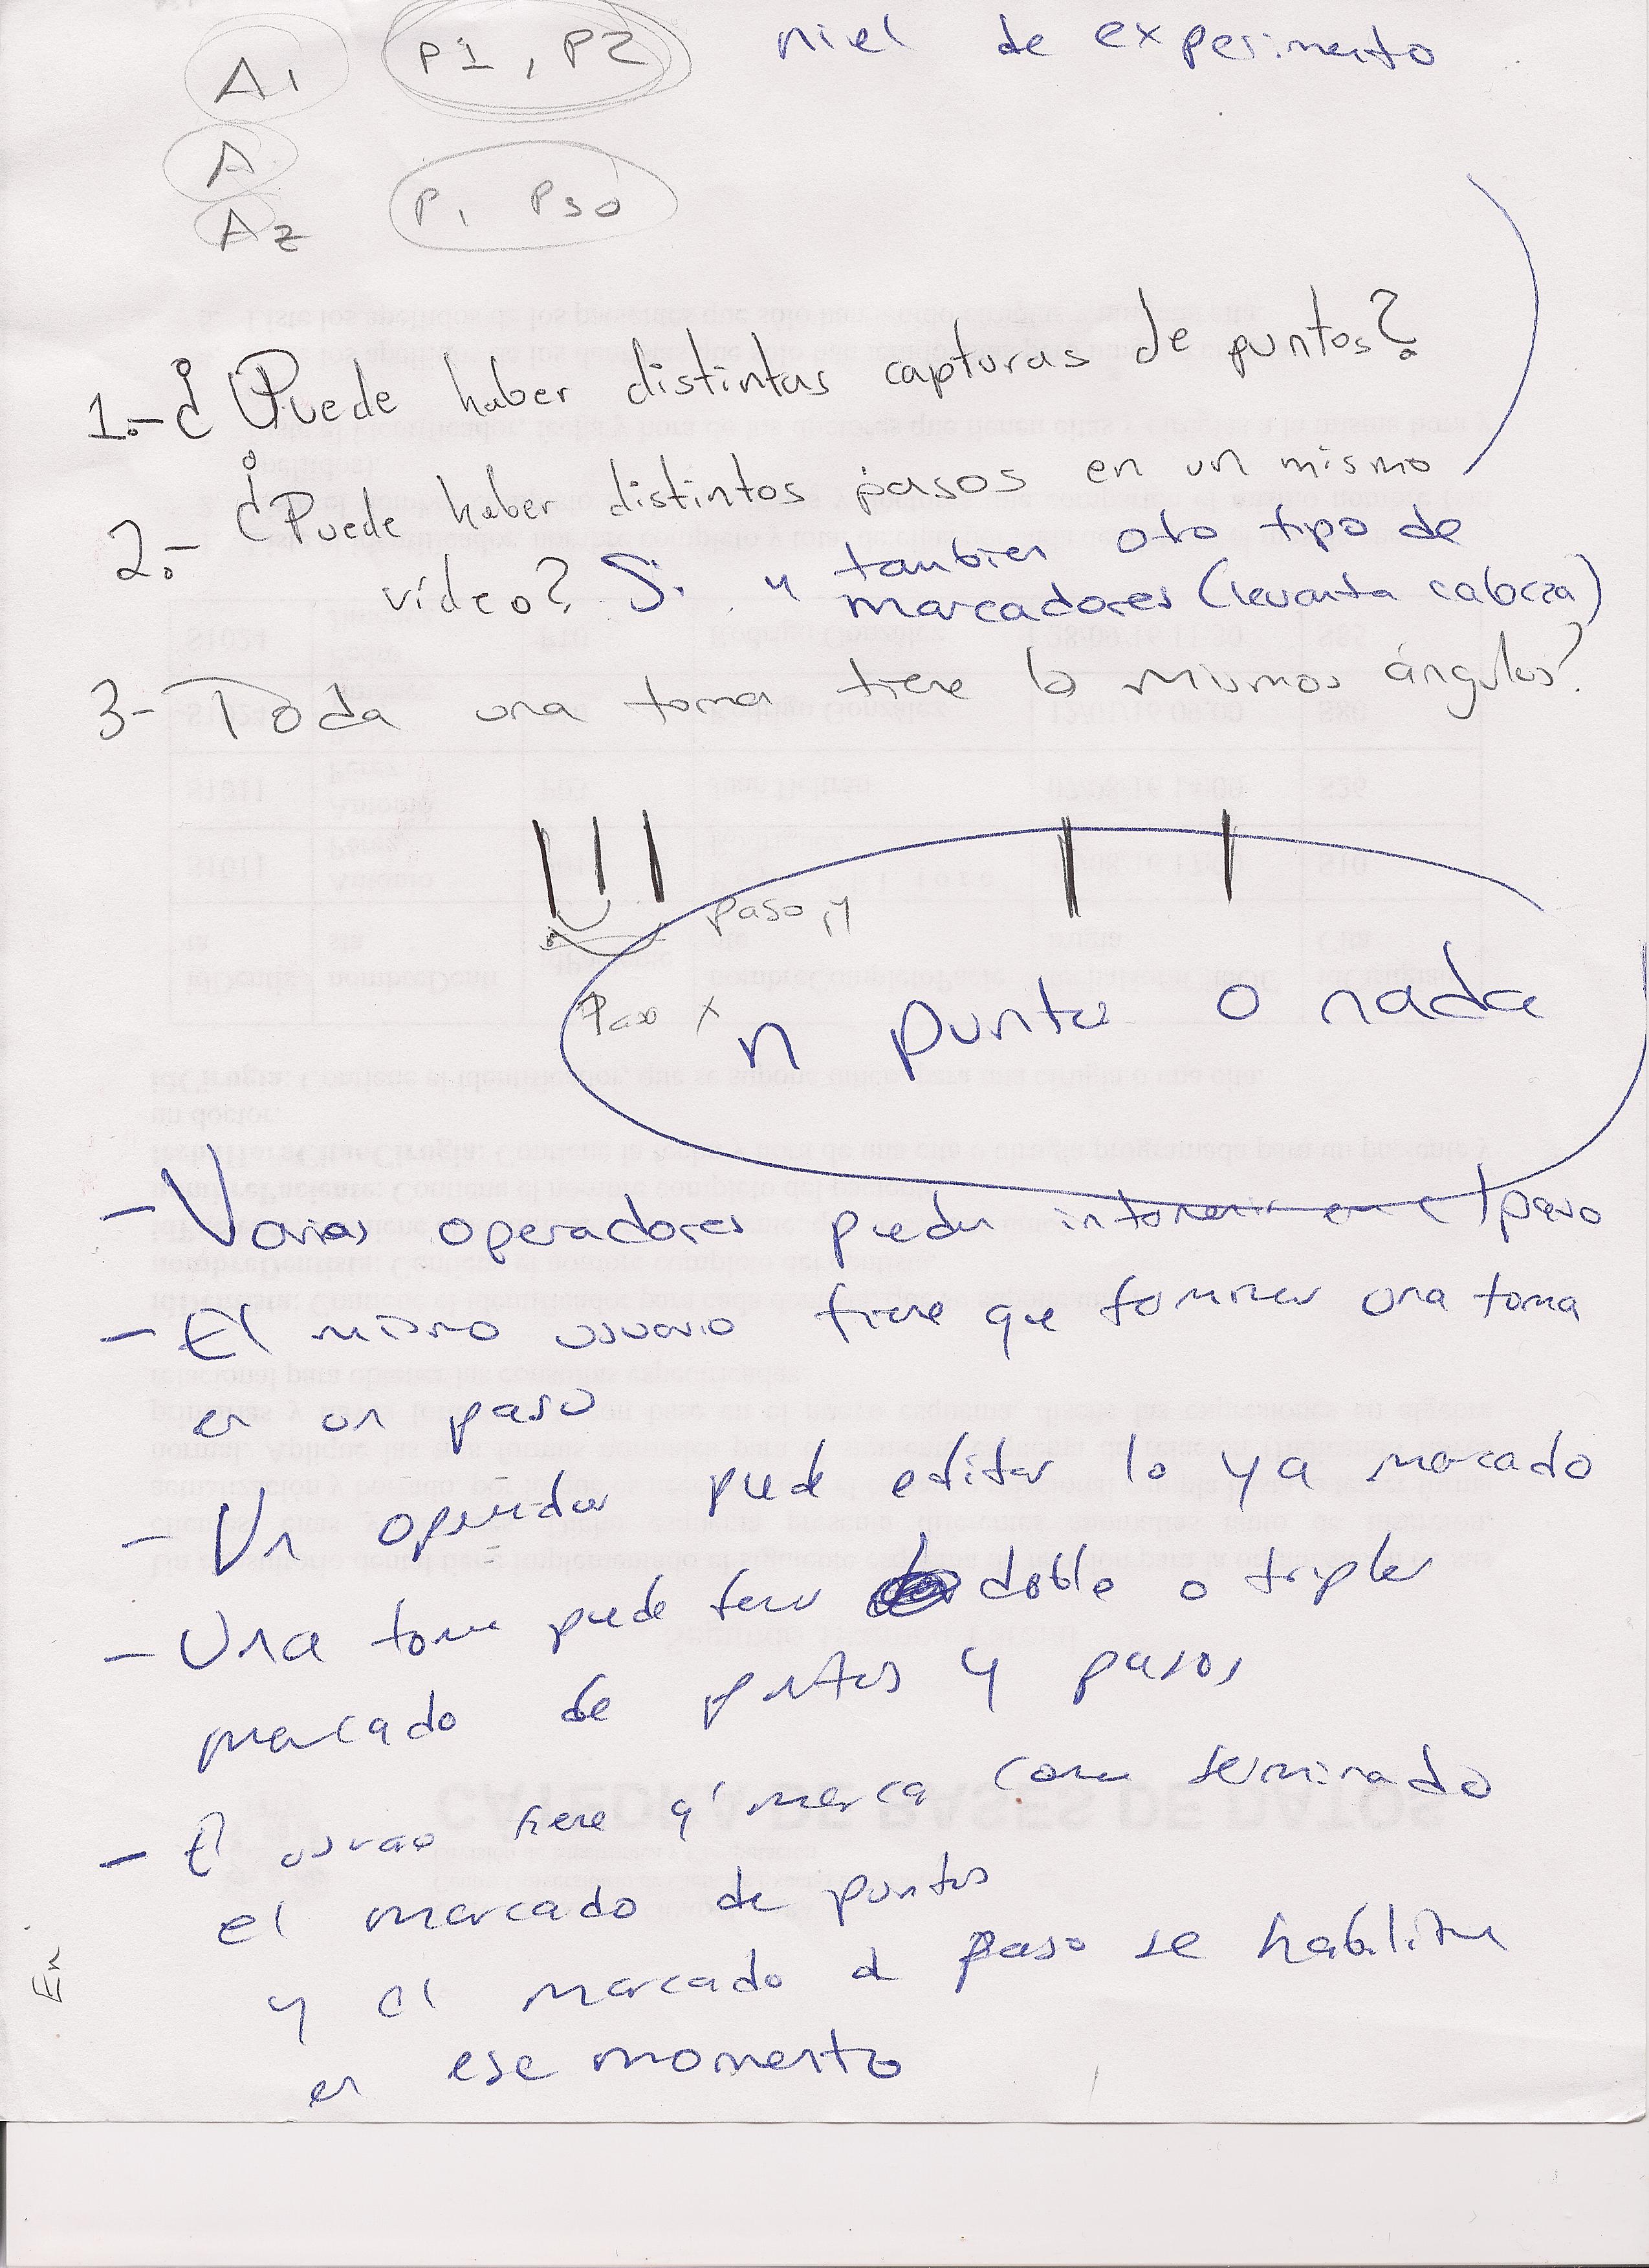 A1 P1, P2 niel de experimento
A
A2 P1 P30
1.- ¿Puede haber distintas capturas de puntos?
2.- ¿Puede haber distintos pasos en un mismo
vídeo? Si y tambien otro tipo de
marcadores (levanta cabeza)
3- Toda una toma tiene los mismos ángulos?
paso y
Paso x
n puntos o nada
- Varios operadores pueden intervenir en el paso
- El mismo usuario tiene que terminar una toma
en un paso
- Un operador puede editar lo ya marcado
- Una toma puede tener doble o triples
marcado de puntos y pasos
- El usuario tiene q' marca como terminado
el marcado de puntos
y el marcado d paso se habilita
en ese momento
En